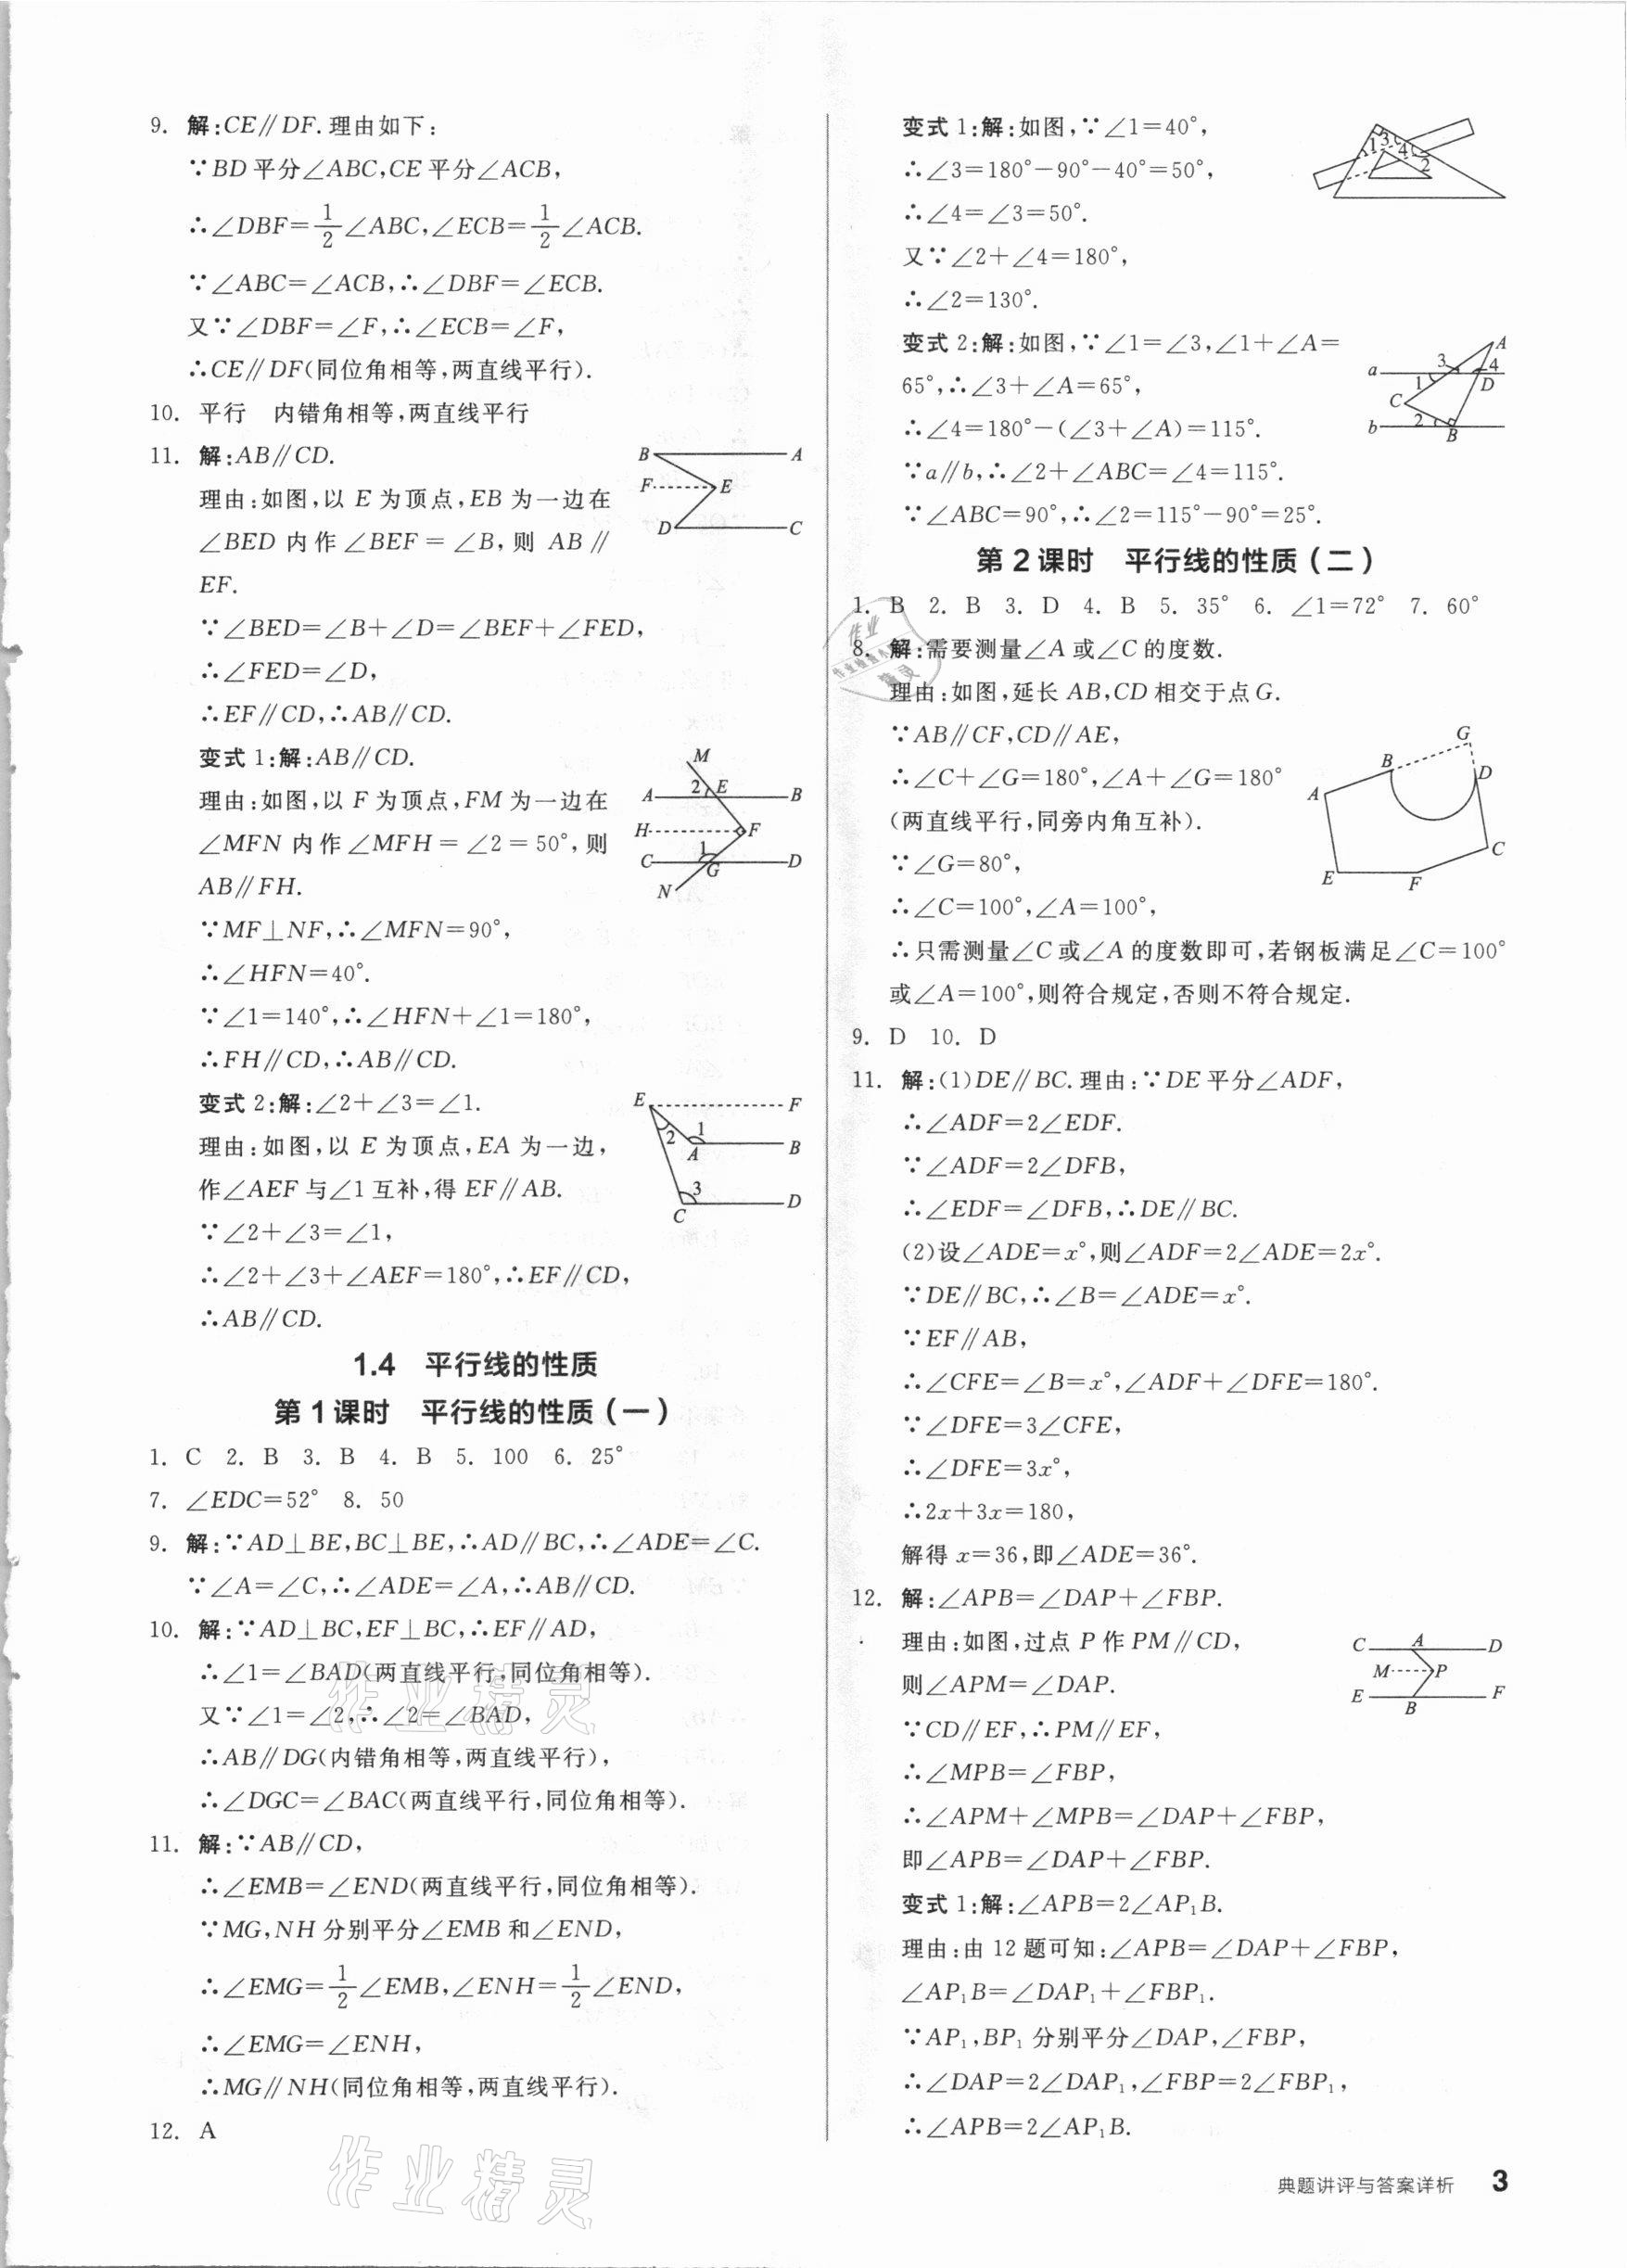 9. 解:CE∥DF.理由如下:
∵BD平分∠ABC,CE平分∠ACB,
∴∠DBF=1/2∠ABC,∠ECB=1/2∠ACB.
∵∠ABC=∠ACB,∴∠DBF=∠ECB.
又∵∠DBF=∠F,∴∠ECB=∠F,
∴CE∥DF(同位角相等,两直线平行).
10. 平行 内错角相等,两直线平行
11. 解:AB∥CD.
理由:如图,以E为顶点,EB为一边在
∠BED内作∠BEF=∠B,则AB∥
EF.
∵∠BED=∠B+∠D=∠BEF+∠FED,
∴∠FED=∠D,
∴EF∥CD,∴AB∥CD.
B A
F E
D C
变式1:解:AB∥CD.
理由:如图,以F为顶点,FM为一边在
∠MFN内作∠MFH=∠2=50°,则
AB∥FH.
∵MF⊥NF,∴∠MFN=90°,
∴∠HFN=40°.
∵∠1=140°,∴∠HFN+∠1=180°,
∴FH∥CD,∴AB∥CD.
M
A 2 E B
H F
C 1 G D
N
变式2:解:∠2+∠3=∠1.
理由:如图,以E为顶点,EA为一边,
作∠AEF与∠1互补,得EF∥AB.
∵∠2+∠3=∠1,
∴∠2+∠3+∠AEF=180°,∴EF∥CD,
∴AB∥CD.
E F
2 1 A B
3 C D
1.4 平行线的性质
第1课时 平行线的性质(一)
1. C 2. B 3. B 4. B 5. 100 6. 25°
7. ∠EDC=52° 8. 50
9. 解:∵AD⊥BE,BC⊥BE,∴AD∥BC,∴∠ADE=∠C.
∵∠A=∠C,∴∠ADE=∠A,∴AB∥CD.
10. 解:∵AD⊥BC,EF⊥BC,∴EF∥AD,
∴∠1=∠BAD(两直线平行,同位角相等).
又∵∠1=∠2,∴∠2=∠BAD,
∴AB∥DG(内错角相等,两直线平行),
∴∠DGC=∠BAC(两直线平行,同位角相等).
11. 解:∵AB∥CD,
∴∠EMB=∠END(两直线平行,同位角相等).
∵MG,NH分别平分∠EMB和∠END,
∴∠EMG=1/2∠EMB,∠ENH=1/2∠END,
∴∠EMG=∠ENH,
∴MG∥NH(同位角相等,两直线平行).
12. A
作业精灵
作业精灵
变式1:解:如图,∵∠1=40°,
∴∠3=180°-90°-40°=50°,
∴∠4=∠3=50°.
又∵∠2+∠4=180°,
∴∠2=130°.
1 3 4 2
变式2:解:如图,∵∠1=∠3,∠1+∠A=
65°,∴∠3+∠A=65°,
∴∠4=180°-(∠3+∠A)=115°.
∵a∥b,∴∠2+∠ABC=∠4=115°.
∵∠ABC=90°,∴∠2=115°-90°=25°.
A
a 3 4
1 D
C
b 2 B
第2课时 平行线的性质(二)
1. B 2. B 3. D 4. B 5. 35° 6. ∠1=72° 7. 60°
8. 解:需要测量∠A或∠C的度数.
理由:如图,延长AB,CD相交于点G.
∵AB∥CF,CD∥AE,
∴∠C+∠G=180°,∠A+∠G=180°
(两直线平行,同旁内角互补).
∵∠G=80°,
∴∠C=100°,∠A=100°,
∴只需测量∠C或∠A的度数即可,若钢板满足∠C=100°
或∠A=100°,则符合规定,否则不符合规定.
G
B D
A
C
E F
9. D 10. D
11. 解:(1)DE∥BC.理由:∵DE平分∠ADF,
∴∠ADF=2∠EDF.
∵∠ADF=2∠DFB,
∴∠EDF=∠DFB,∴DE∥BC.
(2)设∠ADE=x°,则∠ADF=2∠ADE=2x°.
∵DE∥BC,∴∠B=∠ADE=x°.
∵EF∥AB,
∴∠CFE=∠B=x°,∠ADF+∠DFE=180°.
∵∠DFE=3∠CFE,
∴∠DFE=3x°,
∴2x+3x=180,
解得x=36,即∠ADE=36°.
12. 解:∠APB=∠DAP+∠FBP.
理由:如图,过点P作PM∥CD,
则∠APM=∠DAP.
∵CD∥EF,∴PM∥EF,
∴∠MPB=∠FBP,
∴∠APM+∠MPB=∠DAP+∠FBP,
即∠APB=∠DAP+∠FBP.
C A D
M P
E B F
变式1:解:∠APB=2∠AP₁B.
理由:由12题可知:∠APB=∠DAP+∠FBP,
∠AP₁B=∠DAP₁+∠FBP₁.
∵AP₁,BP₁分别平分∠DAP,∠FBP,
∴∠DAP=2∠DAP₁,∠FBP=2∠FBP₁,
∴∠APB=2∠AP₁B.
典题讲评与答案详析 3